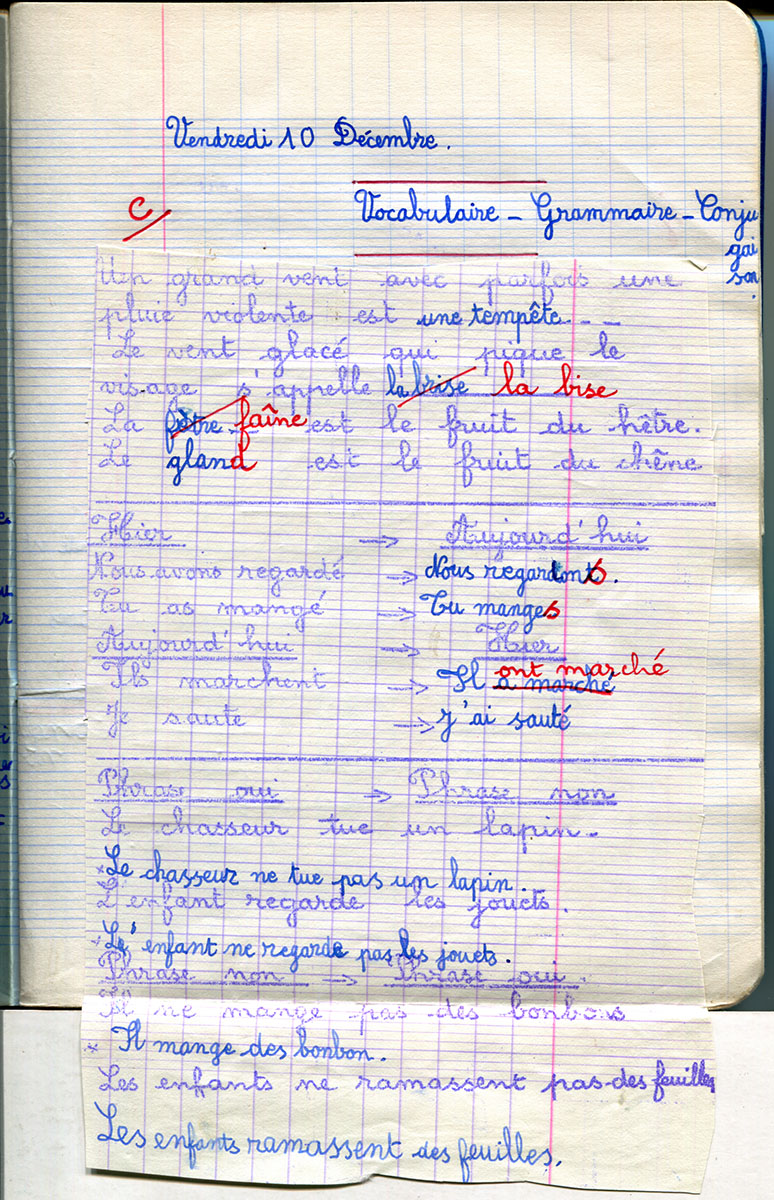 Vendredi 10 Décembre.
C
Vocabulaire - Grammaire - Conju
gai
son.
Un grand vent avec parfois une
pluie violente est une tempête
Le vent glacé qui pique le
visage s'appelle la brise la bise
La fêtre faîne est le fruit du hêtre.
Le gland est le fruit du chêne
Hier → Aujourd'hui
Nous avons regardé → Nous regardons.
Tu as mangé → Tu manges
Aujourd'hui → Hier
ont marché
Ils marchent → Il a marché
Je saute → J'ai sauté
Phrase oui → Phrase non
Le chasseur tue un lapin.
* Le chasseur ne tue pas un lapin.
L'enfant regarde les jouets.
* Le'enfant ne regarde pas les jouets.
Phrase non → Phrase oui.
Il ne mange pas des bonbons
* Il mange des bonbon.
Les enfants ne ramassent pas des feuilles
Les enfants ramassent des feuilles.